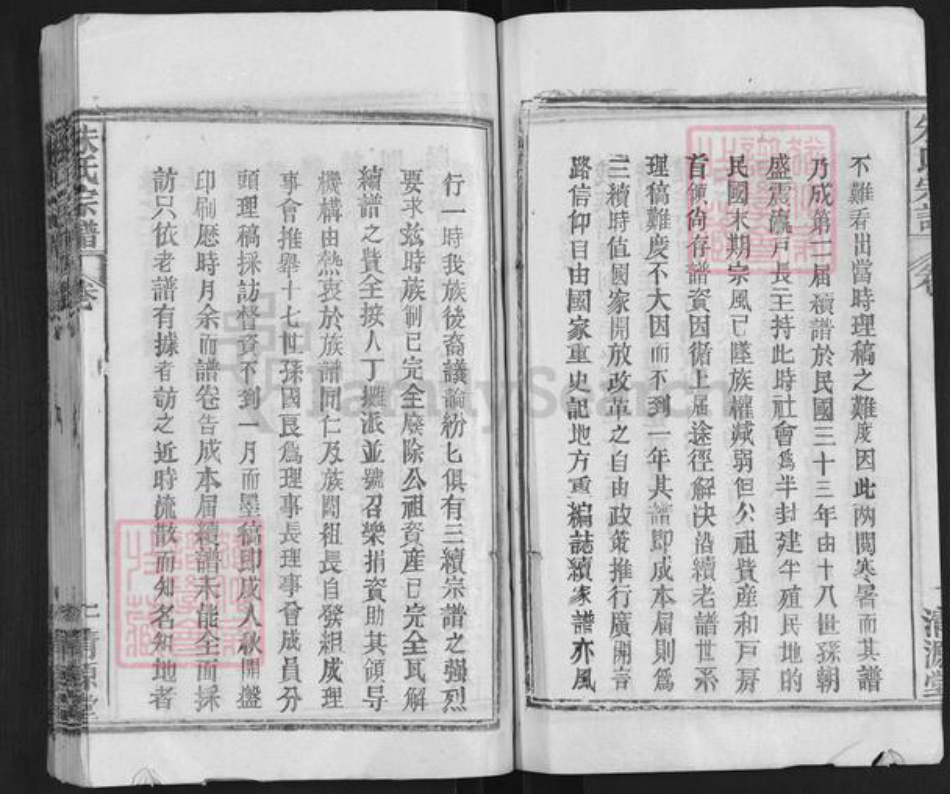 不難看出當時理稿之難度因此兩閱寒暑而其譜
乃成第二届續譜於民國三十三年由十八世孫朝
盛震瀛戸長主持此時社會爲半封建半殖民地的
民國末期宗風已墜族權减弱但公祖費産和戸房
首領尙存譜資因衛上届途徑解决沿續老譜世系
理稿難度不大因而不到一年其譜即成本届則爲
三續時值國家開放政革之自由政策推行廣開言
路信仰目由國家重史記地方重編誌續家譜亦風
清源堂
朱氏宗譜
卷
行一時我族後裔議論紛匕俱有三續宗譜之强烈
要求兹時族制已完全廢除公祖資産已完全瓦解
續譜之費全按人丁攤派並號召樂捐資助其領导
機構由熱衷於族譜同仁及族閎祖長自發組成理
事會推舉十七世孫國良爲理事長理事會成員分
頭理稿採訪督資不到一月而墨稿即成入秋開盤
印刷歷時月余而譜卷告成本届續譜未能全面採
訪只依老譜有據者訪之近時流散而知名知地者
清源堂
FamilySearch